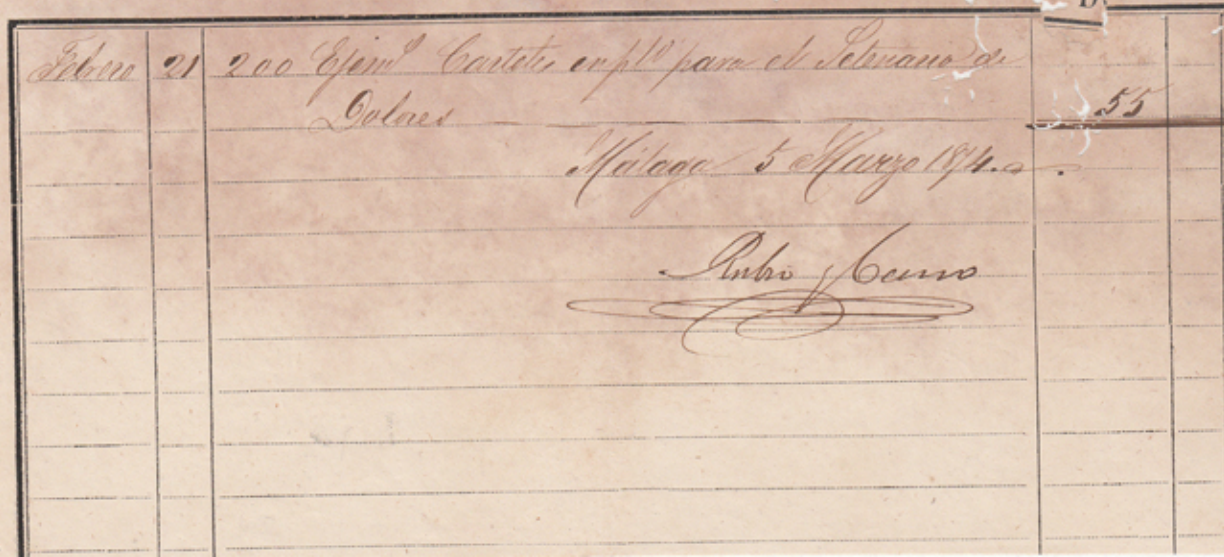 Febrero 21 200 Ejemˢ Carteles en plº para el Setenario de
Dolores 55
Málaga 5 Marzo 1874.
Rubio y Cano